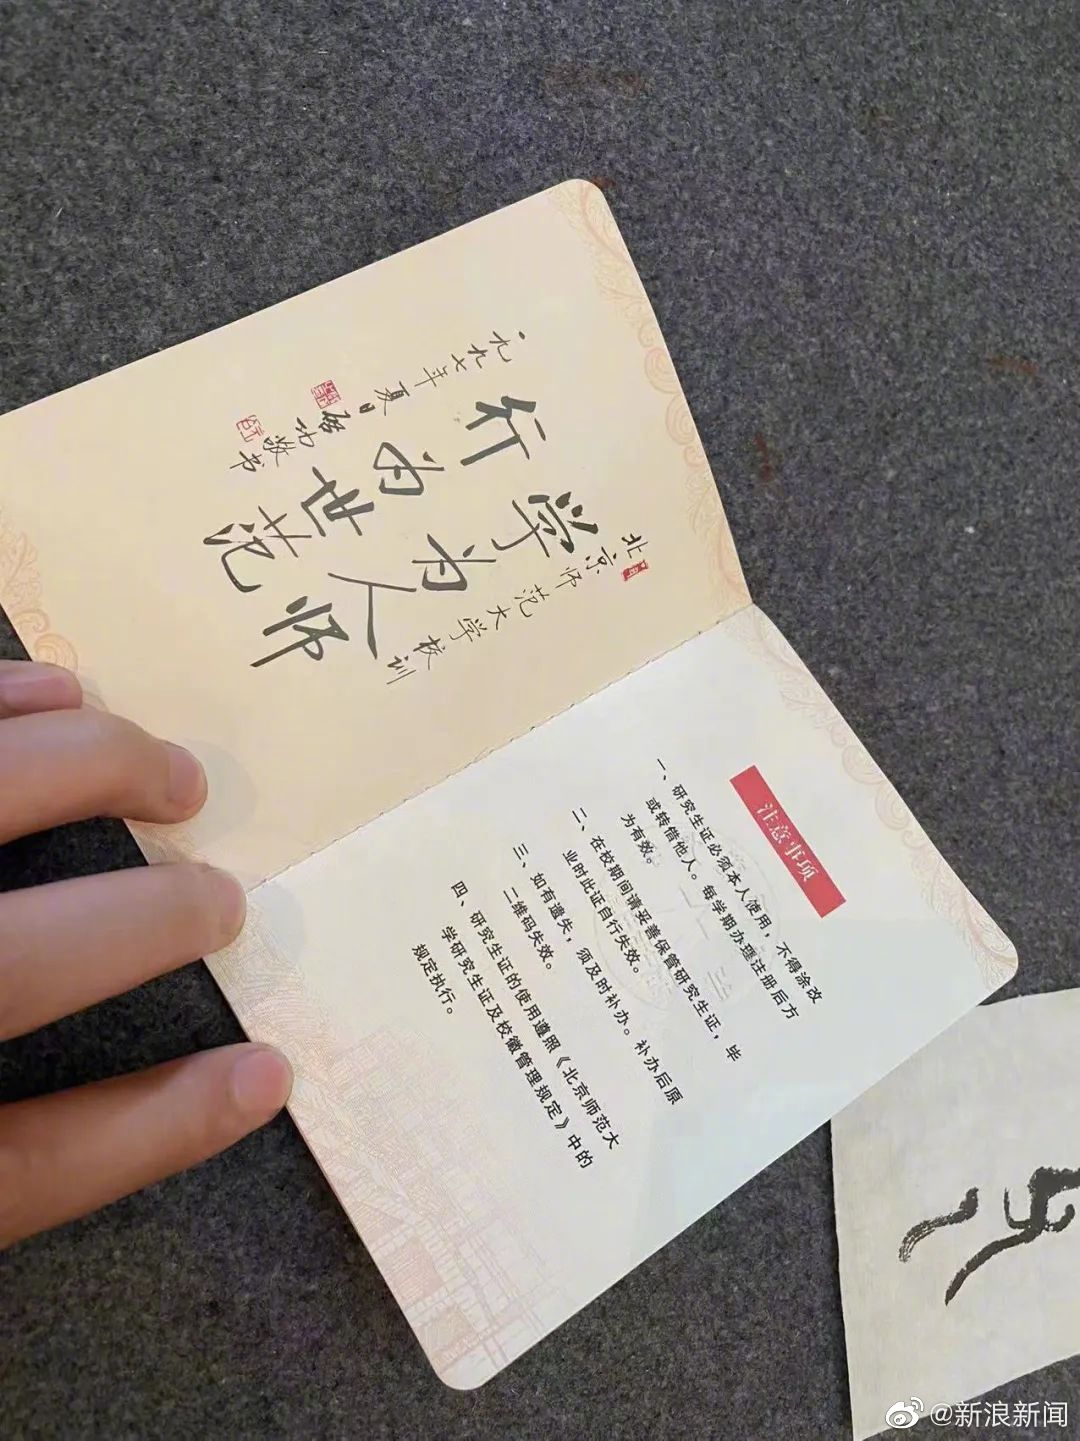 北京师范大学校训
学为人师
行为世范
一九九七年夏日
启功敬书
注意事项
一、研究生证必须本人使用，不得涂改
或转借他人。每学期办理注册后方
为有效。
二、在校期间请妥善保管研究生证，毕
业时此证自行失效。
三、如有遗失，须及时补办。补办后原
二维码失效。
四、研究生证的使用遵照《北京师范大
学研究生证及校徽管理规定》中的
规定执行。
@新浪新闻